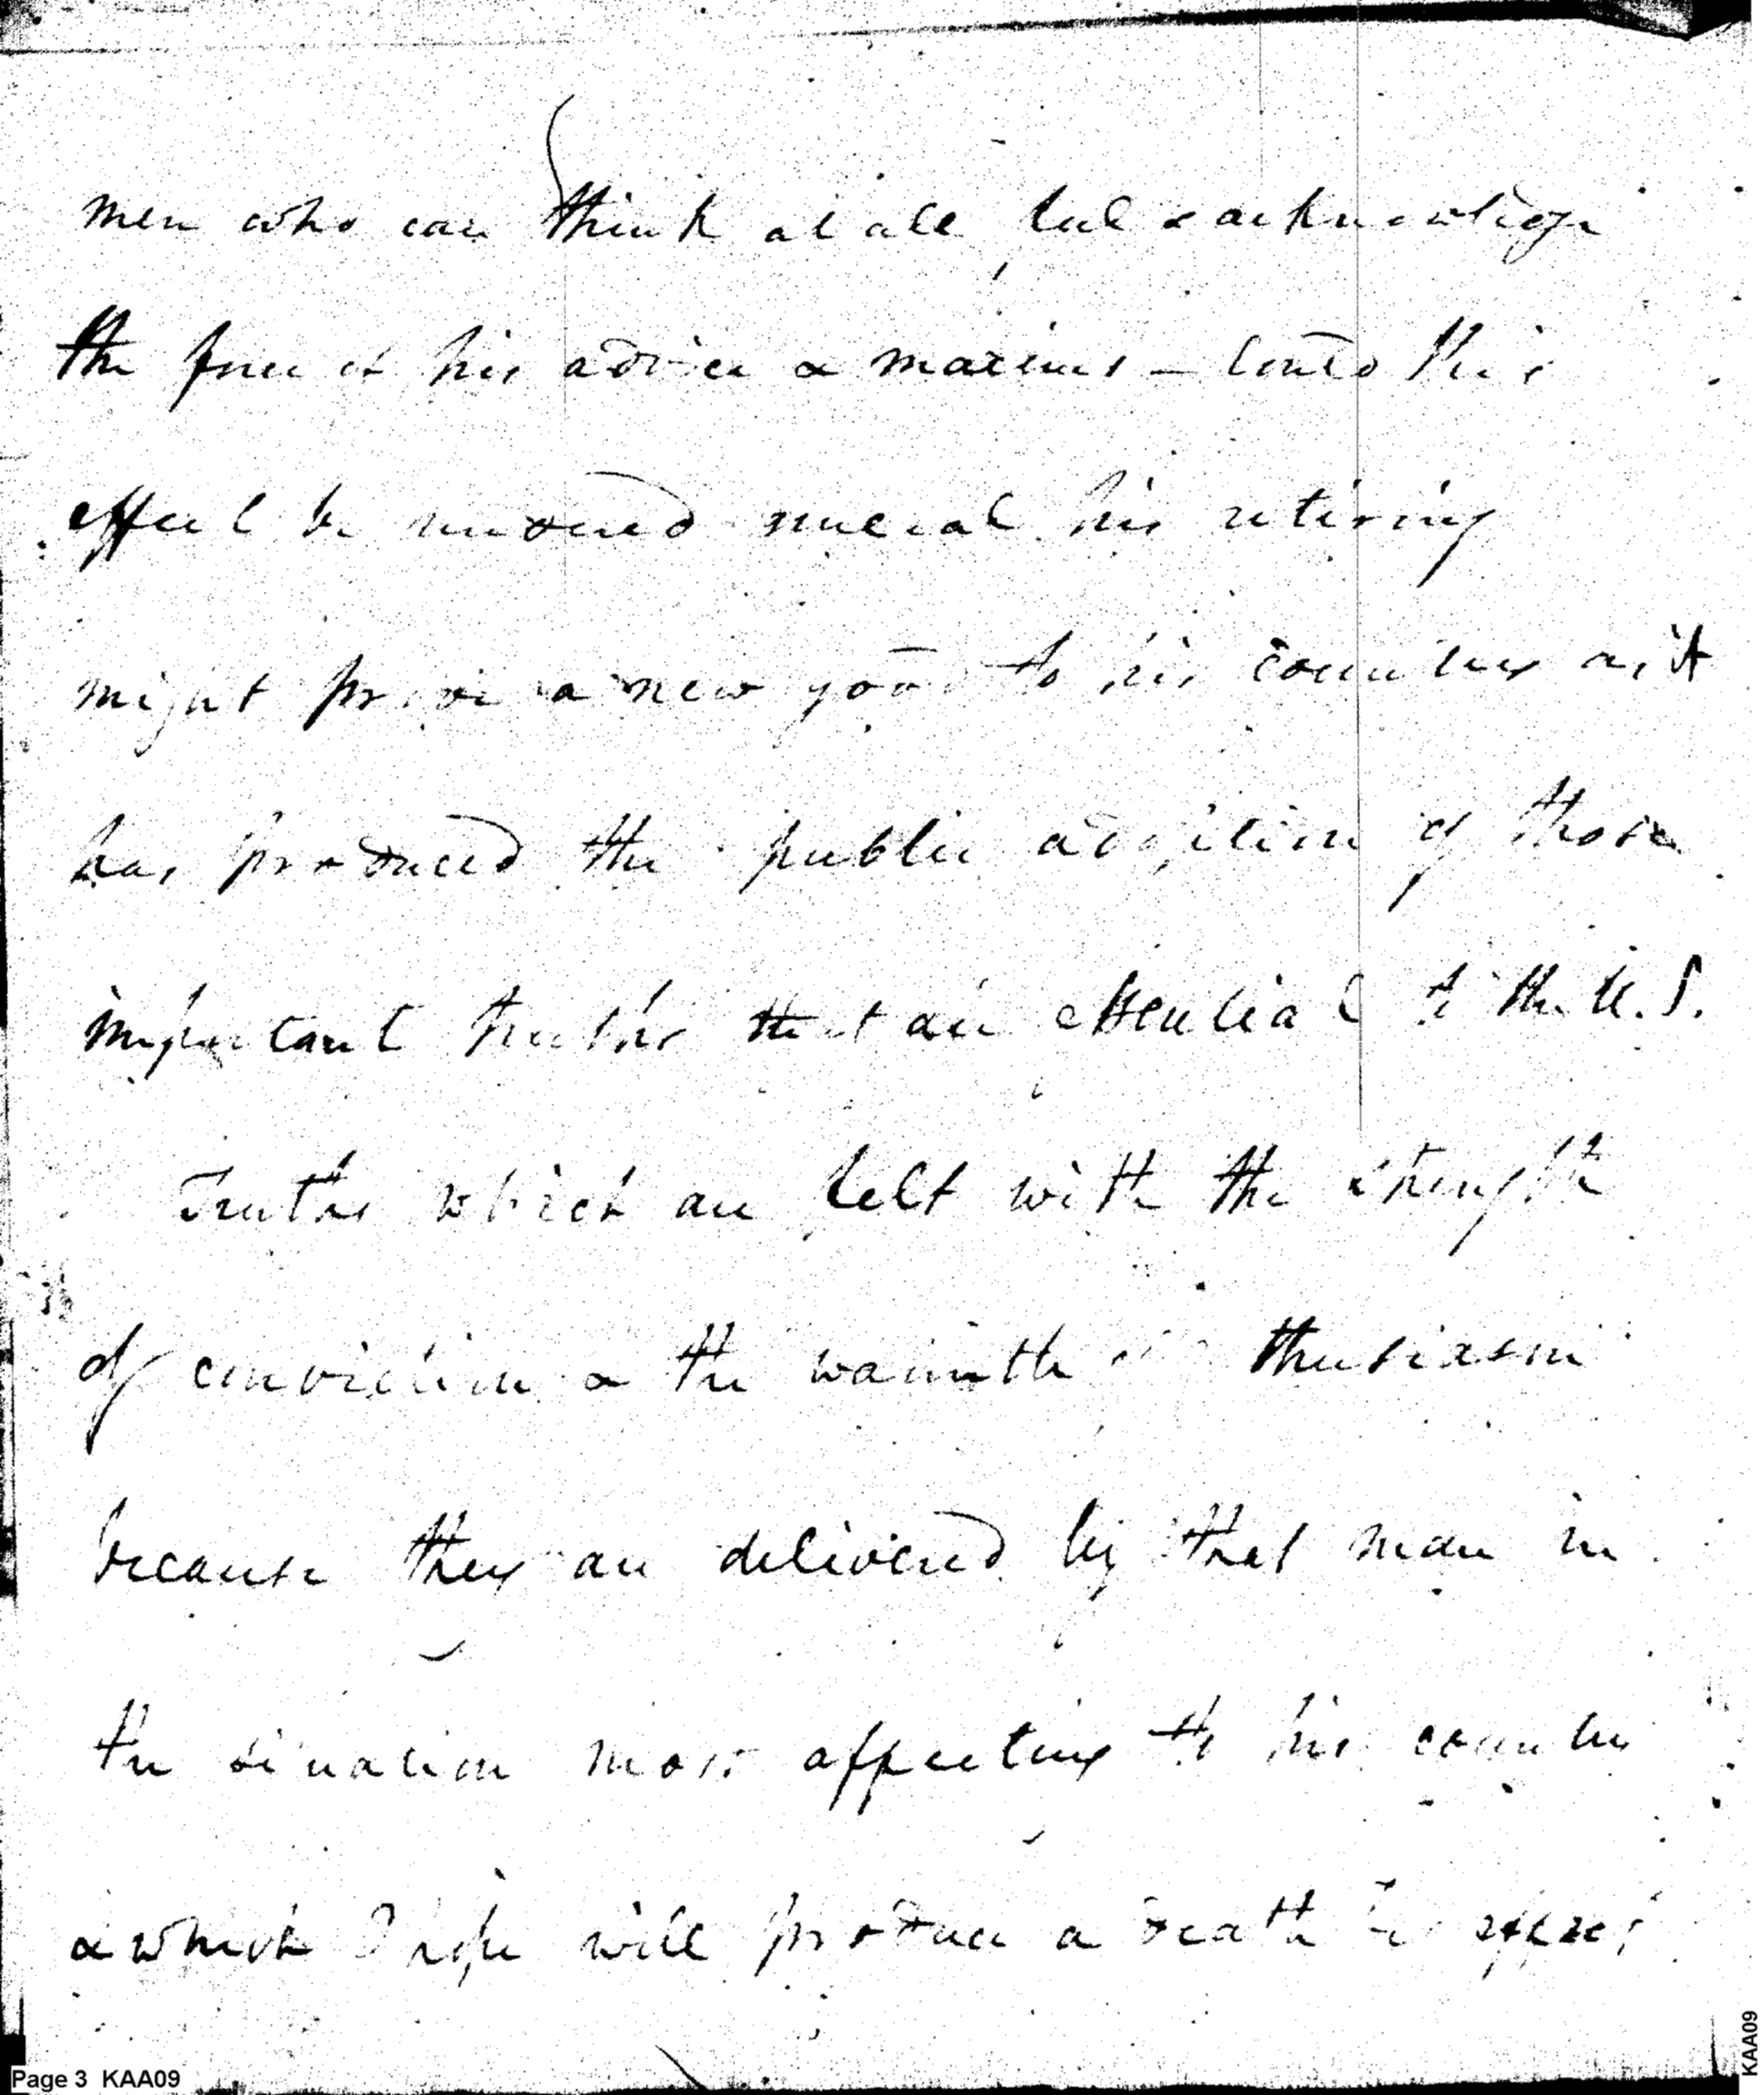 men who can think at all feel & acknowledge
the force of his advice & maxims – Could this
effect be rendered general his retiring
might prove a new good to his country as it
has produced the public adoption of those
important truths that are essential to the U.S.
Truths which are felt with the strength
of conviction & the warmth thusiasm
because they are delivered by that man in
the situation most affecting to his country
& which I hope will produce a death
Page 3 KAA09
KAA09